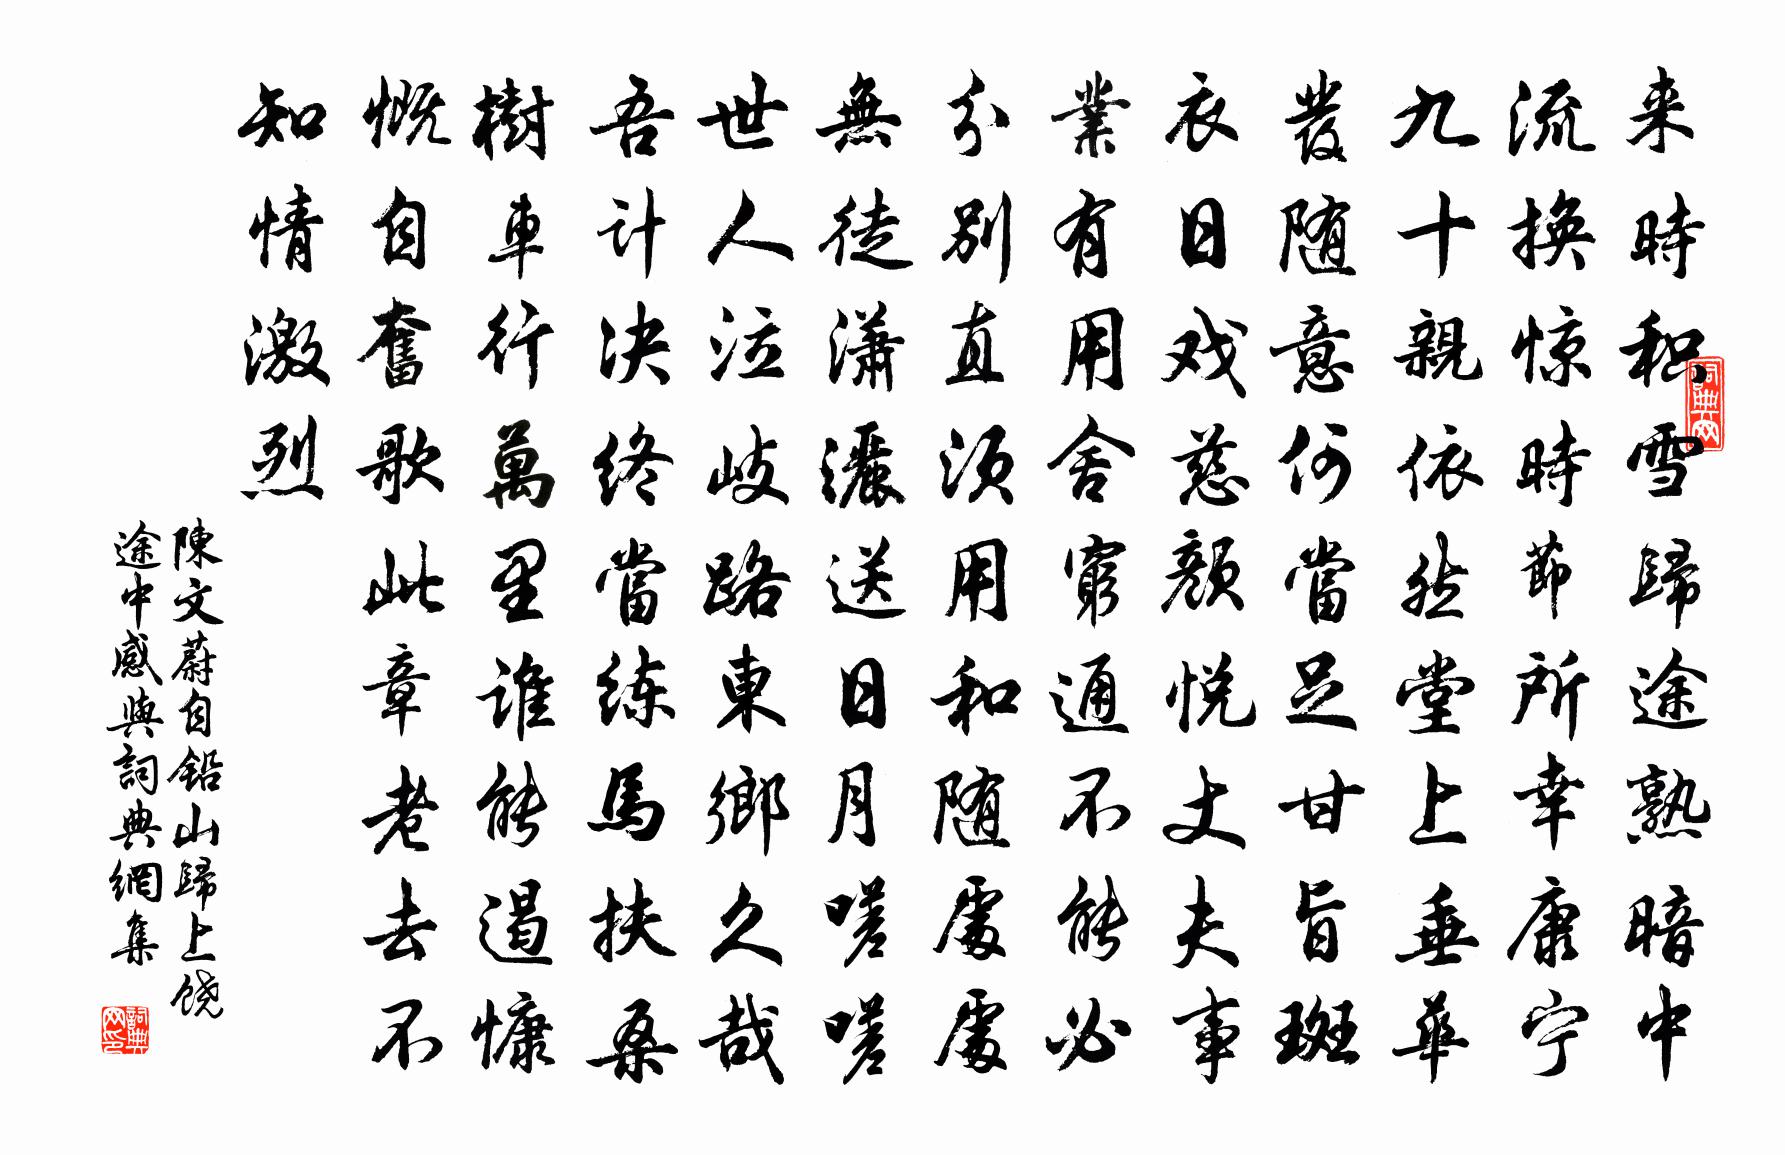 来時积雪歸途熟暗中
流換惊時節所幸康宁
九十親依然堂上垂華
發随意何當足甘旨斑
衣日戏慈顔悦丈夫事
業有用舍窮通不能必
分别直须用和随處處
無徒瀟灑送日月嗟嗟
世人泣岐路東鄉久哉
吾計决终當练馬扶桑
樹車行萬里谁能遏慷
慨自奮歌此章老去不
知情激烈
陳文蔚自鉛山歸上饶
途中感興詞典網集
詞典网
詞典网印